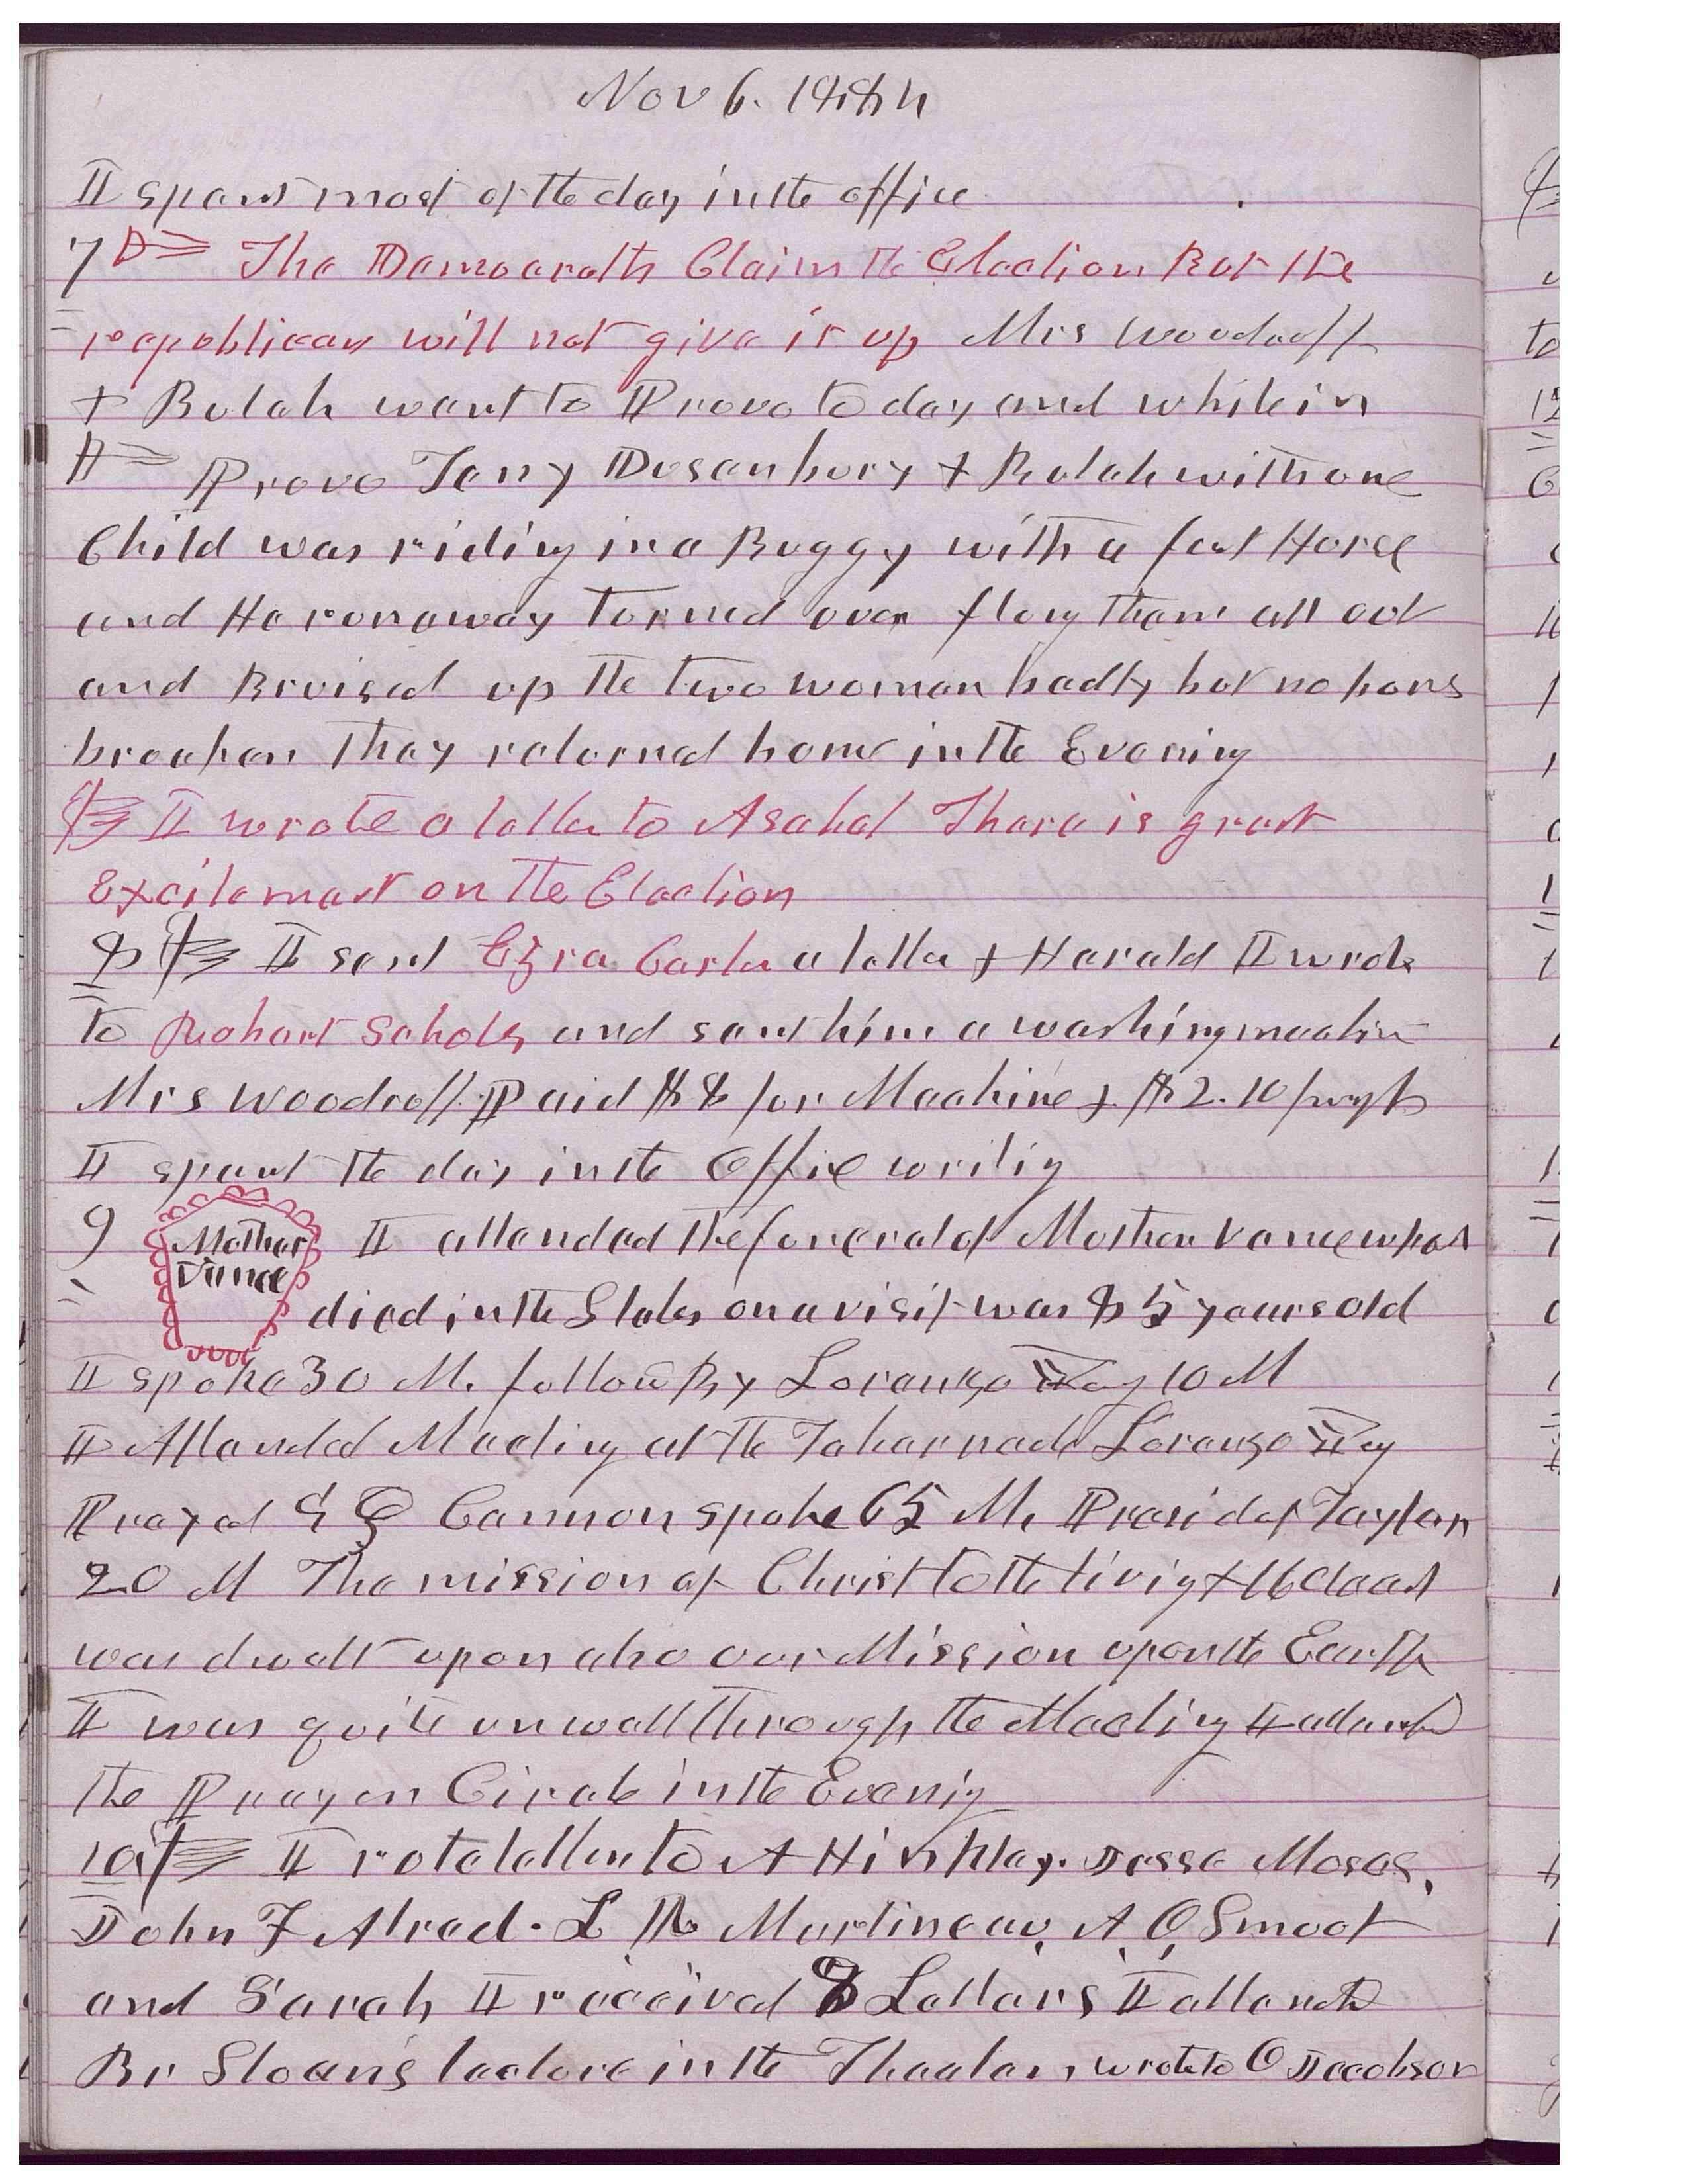 Nov 6. 1884
I spent most of the day in the office
7 The Democrats Claim the Election But the
republican will not give it up Mrs Woodruff
+ Bulah went to Provo to day and while in
Provo Jenny Dusenbury + Bulah with one
Child was riding in a Buggy with a fast Horse
and He ronaway turned over flong them all out
and Bruised up the two woman badly but no bons
broaken They returned home in the Evening
I wrote a letter to Asahel There is great
Excitement on the Election
8 I sent Ezra Carter a letter + Harald I wrote
to Robart Scholes and sent him a washing machin
Mrs Woodruff Paid $8 for Machine + $2.10
I spent the day in the Office writig
9 Mother Vance I attended the funeral of Mother Vance who
died in the States on a visit was 85 years old
I spoke 30 M. follow By Lorenzo 10 M
I Attended Meeting at the Tabernacle Lorenzo
Prayed G Q Cannon spoke 65 M. Presidet Taylor
20 M The mission of Christ to the livig + the dead
was dwelt upon also our Mission upon the Earth
I was quite unwell through the Meeting I attended
the Prayer Circle in the Evenig
10 I rote letters to A Hinkley. Jesse Moses,
John F Alred. L R Martineau, A, O, Smoot
and Sarah I received 8 Letters I attended
Br Sloan's lecture in the Theater, wrote to O Jacobson